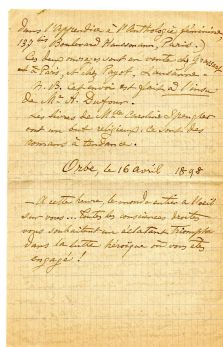 dans l'Appendice à l'Anthologie féminine
137bis Boulevard Haussmann, Paris.)
Ces deux ouvrages sont en vente chez
à Paris, et chez Payot, Lausanne.
N.B. Cet envoi est fait à l'insu
de Mlle A. Dufour.
Les livres de Mlle Caroline
ont un but religieux; ce sont des
romans à tendance.
Orbe, le 16 avril 1898
— A cette heure, le monde entier a l'œil
sur vous... Toutes les consciences droites
vous souhaitent un éclatant Triomphe
dans la lutte héroïque où vous êtes
engagé!